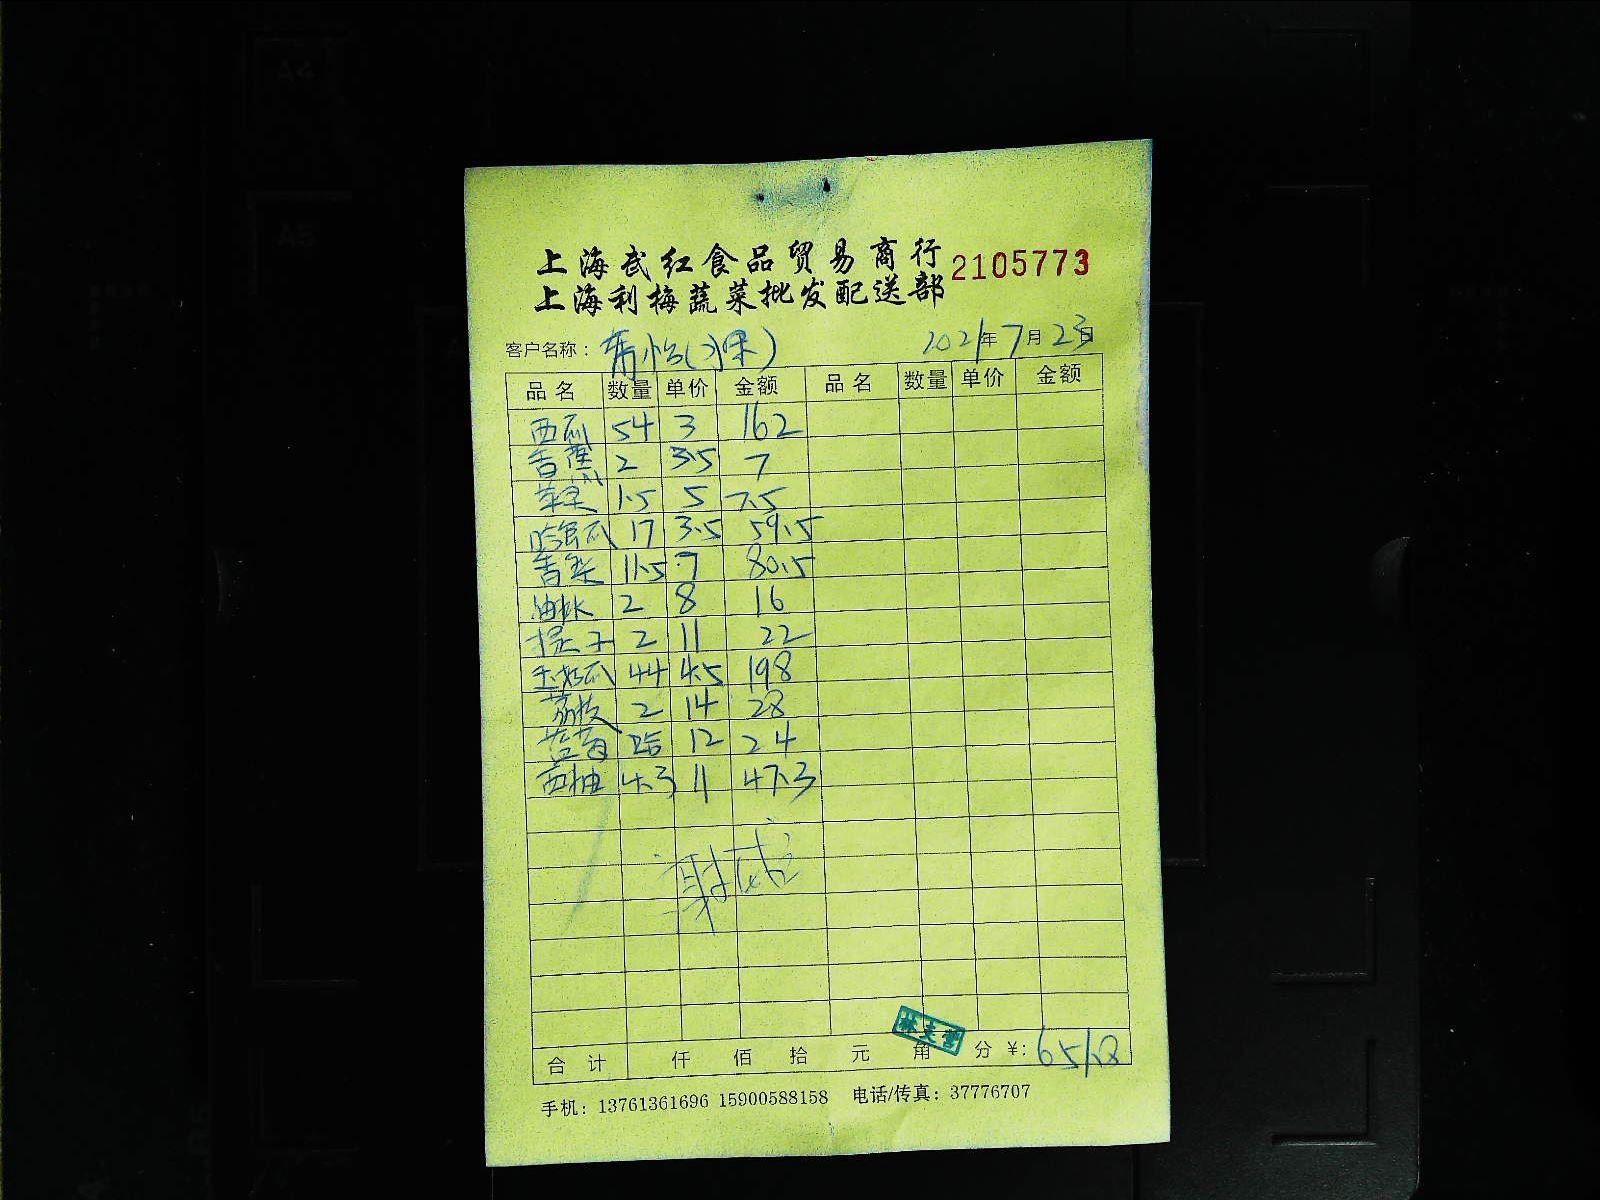 上海武红食品贸易商行 2105773
上海利梅蔬菜批发配送部
客户名称： 2021年7月23日
品名 数量 单价 金额 品名 数量 单价 金额
西瓜 54 3 162
香蕉 2 3.5 7
苹果 1.5 5 7.5
哈密瓜 17 3.5 59.5
青梨 11.5 7 80.5
油桃 2 8 16
提子 2 11 22
玉奶瓜 44 4.5 198
荔枝 2 14 28
12 24
西柚 4.3 11 47.3
合计 仟 佰 拾 元 角 分 ¥: 651.8
手机：13761361696 15900588158 电话/传真：37776707